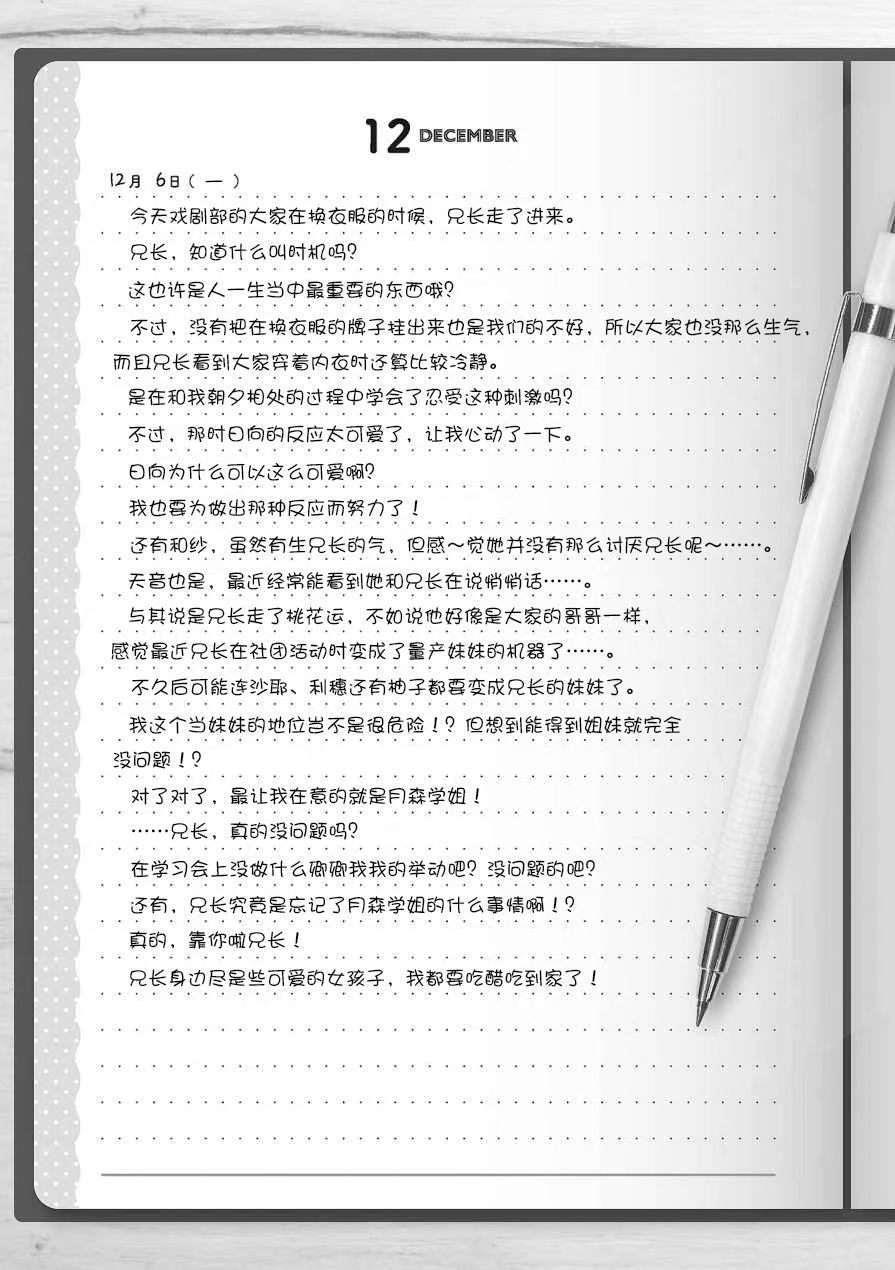 12 DECEMBER
12月 6日（一）
今天戏剧部的大家在换衣服的时候，兄长走了进来。
兄长，知道什么叫时机吗？
这也许是人一生当中最重要的东西哦？
不过，没有把在换衣服的牌子挂出来也是我们的不好，所以大家也没那么生气，
而且兄长看到大家穿着内衣时还算比较冷静。
是在和我朝夕相处的过程中学会了忍受这种刺激吗？
不过，那时日向的反应太可爱了，让我心动了一下。
日向为什么可以这么可爱啊？
我也要为做出那种反应而努力了！
还有和纱，虽然有生兄长的气，但感～觉她并没有那么讨厌兄长呢～……。
天音也是，最近经常能看到她和兄长在说悄悄话……。
与其说是兄长走了桃花运，不如说他好像是大家的哥哥一样，
感觉最近兄长在社团活动时变成了量产妹妹的机器了……。
不久后可能连沙耶、利穗还有柚子都要变成兄长的妹妹了。
我这个当妹妹的地位岂不是很危险！？但想到能得到姐妹就完全
没问题！？
对了对了，最让我在意的就是月森学姐！
……兄长，真的没问题吗？
在学习会上没做什么卿卿我我的举动吧？没问题的吧？
还有，兄长究竟是忘记了月森学姐的什么事情啊！？
真的，靠你啦兄长！
兄长身边尽是些可爱的女孩子，我都要吃醋吃到家了！